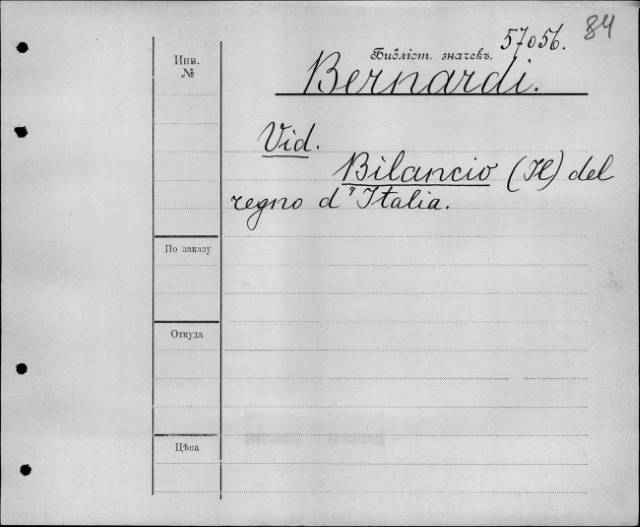 84
57056.
Инв. №
Библіот. значекъ.
Bernardi.
Vid.
Bilancio (Il) del
regno d'Italia.
По заказу
Откуда
Цѣна